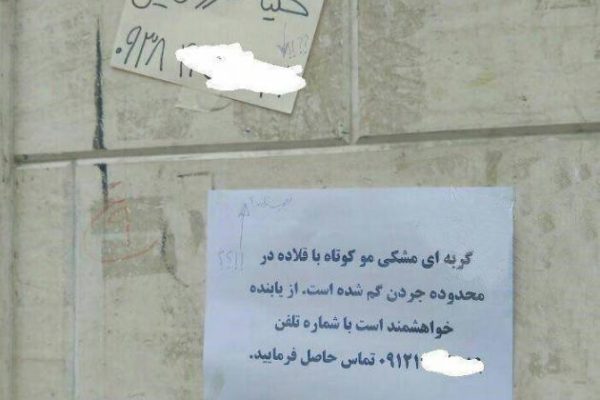 ۰۹۳۸
گربه ای مشکی مو کوتاه با قلاده در
محدوده جردن گم شده است. از یابنده
خواهشمند است با شماره تلفن
۰۹۱۲۱ تماس حاصل فرمایید.